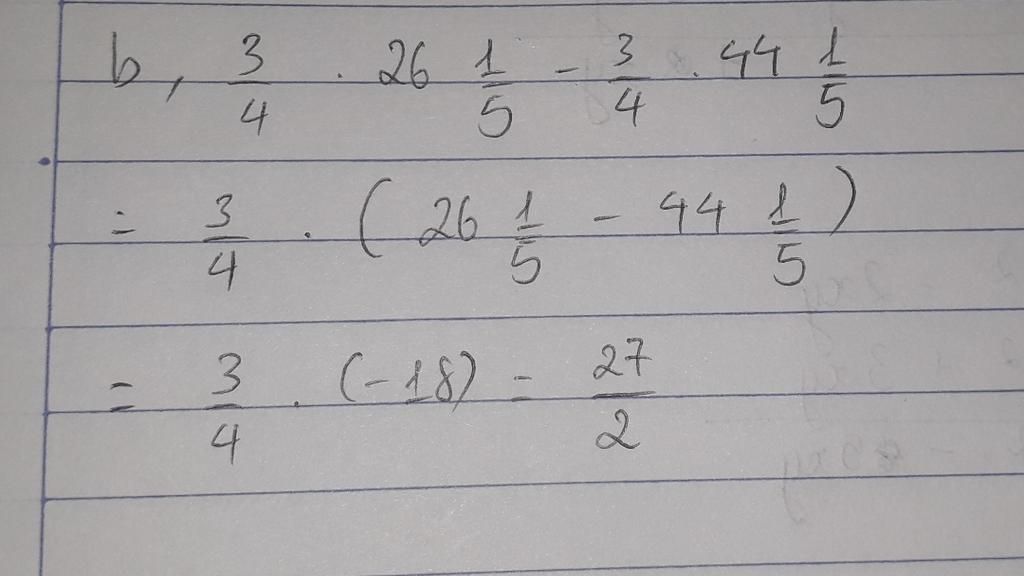 b, 3/4 . 26 1/5 - 3/4 . 44 1/5
= 3/4 . ( 26 1/5 - 44 1/5 )
= 3/4 . (-18) = 27/2